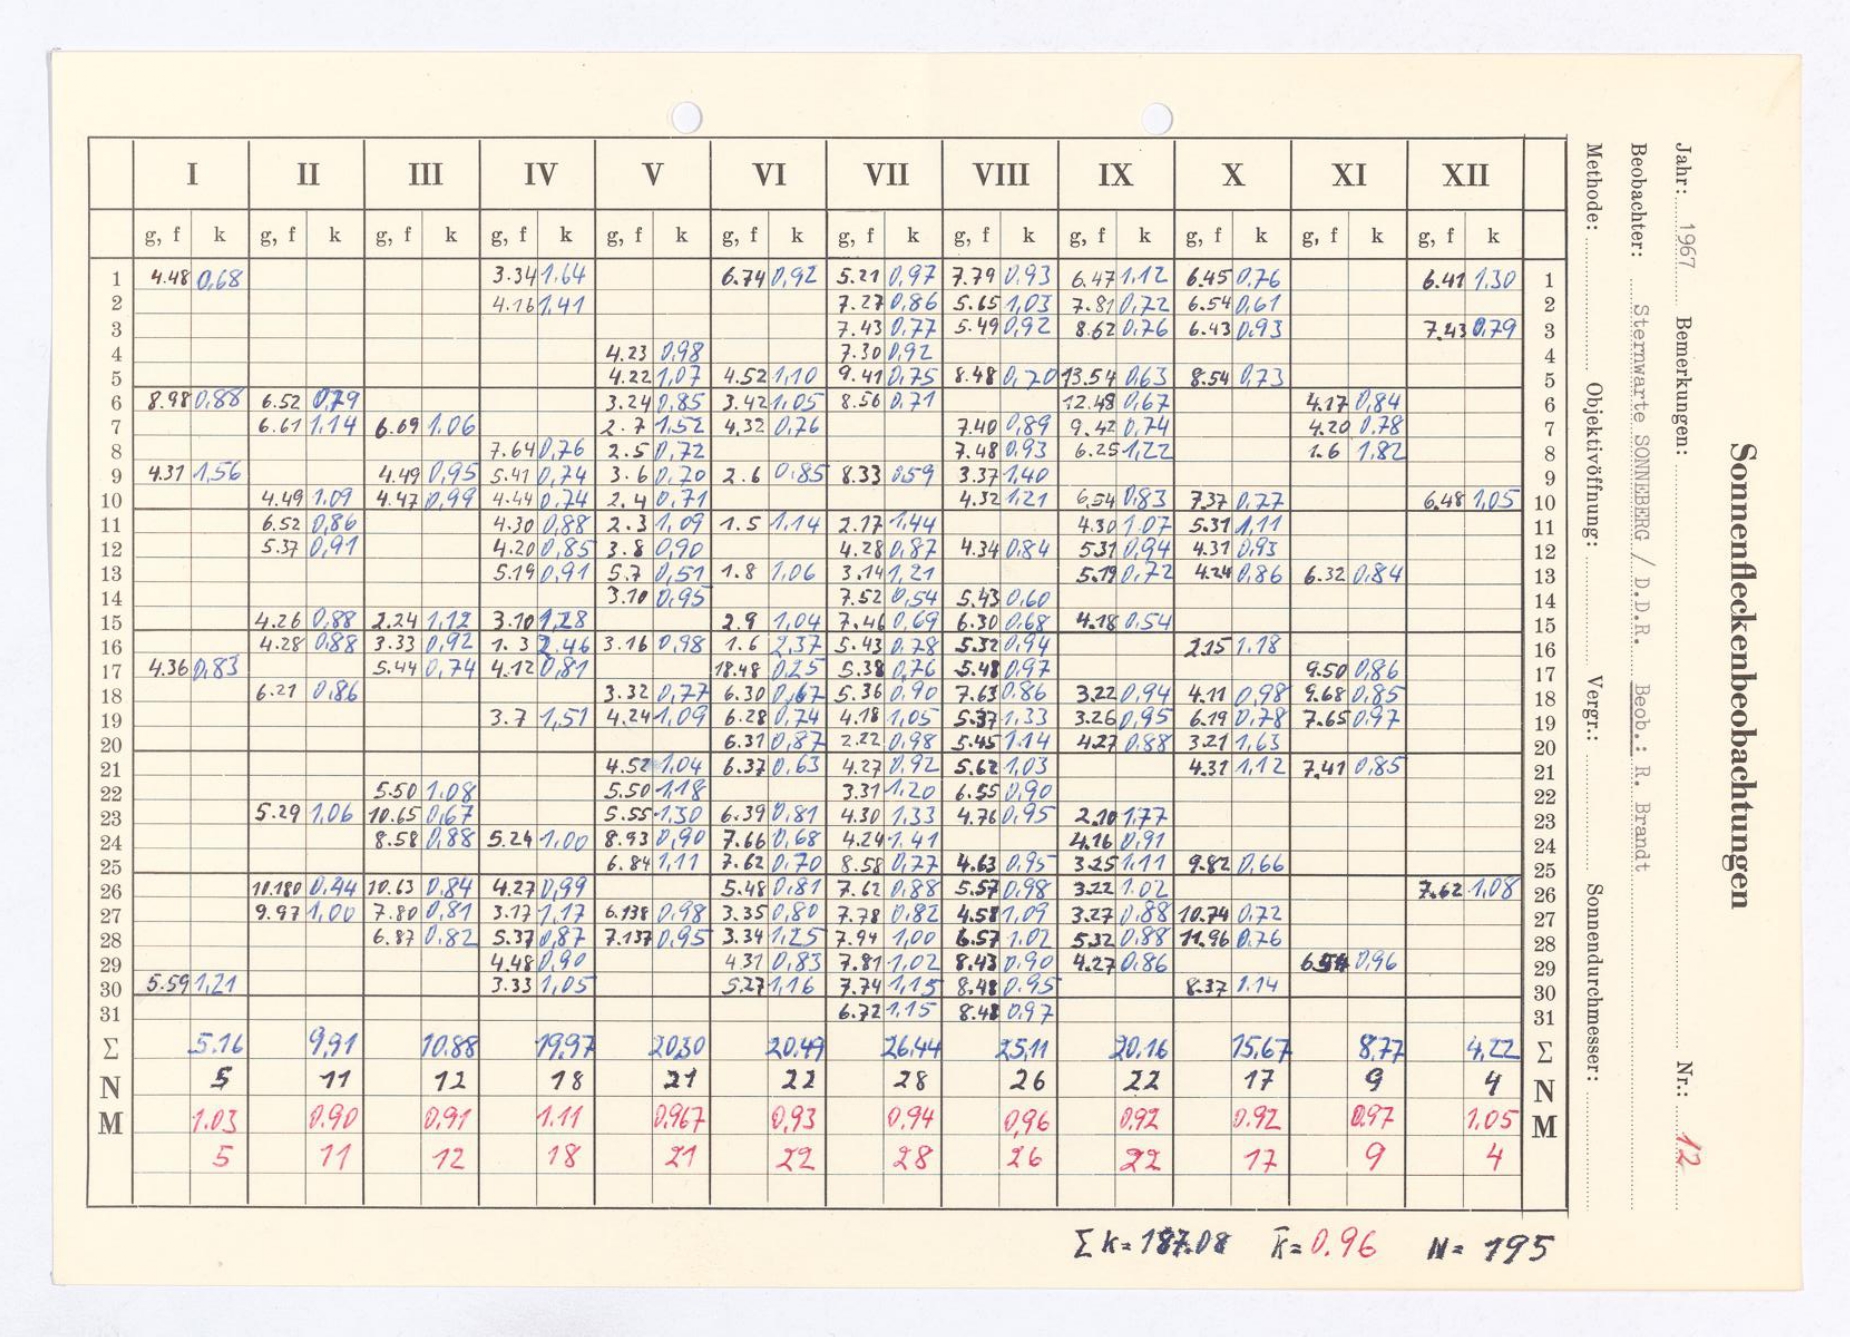 I II III IV V VI VII VIII IX X XI XII
g, f k g, f k g, f k g, f k g, f k g, f k g, f k g, f k g, f k g, f k g, f k g, f k
1 4.48 0,68 3.34 1.64 6.74 0,92 5.21 0,97 7.79 0.93 6.47 1.12 6.45 0.76 6.41 1.30 1
2 4.16 1,41 7.27 0,86 5.65 1,03 7.81 0,72 6.54 0,61 2
3 7.43 0,77 5.49 0,92 8.62 0,76 6.43 0,93 7.43 0,79 3
4 4.23 0,98 7.30 0,92 4
5 4.22 1,07 4.52 1,10 9.41 0,75 8.48 0,70 13.54 0,63 8.54 0,73 5
6 8.98 0,88 6.52 0,79 3.24 0,85 3.42 1.05 8.56 0.71 12.48 0,67 4.17 0,84 6
7 6.61 1,14 6.69 1.06 2.7 1,52 4,32 0,76 7.40 0,89 9.42 0,74 4.20 0,78 7
8 7.64 0,76 2.5 0,72 7.48 0,93 6.25 1,22 1.6 1,82 8
9 4.31 1,56 4.49 0,95 5.41 0,74 3.6 0,70 2.6 0,85 8.33 0,59 3.37 1.40 9
10 4.49 1.09 4.47 0,99 4.44 0,74 2.4 0,71 4.32 1.21 6,54 0,83 7.37 0,77 6.48 1,05 10
11 6.52 0,86 4.30 0,88 2.3 1,09 1.5 1,14 2.17 1,44 4.30 1.07 5.31 1,11 11
12 5.37 0,91 4.20 0,85 3.8 0,90 4.28 0,87 4.34 0,84 5.31 0,94 4.31 0,93 12
13 5.19 0,91 5.7 0,51 1.8 1,06 3.14 1,21 5.19 0,72 4.24 0,86 6.32 0,84 13
14 3.10 0,95 7.52 0,54 5.43 0,60 14
15 4.26 0,88 2.24 1,12 3.10 1,28 2.9 1,04 7.46 0,69 6.30 0,68 4.18 0,54 15
16 4.28 0,88 3.33 0,92 1.3 2,46 3.16 0,98 1.6 2,37 5.43 0.78 5.32 0,94 2.15 1.18 16
17 4.36 0,83 5.44 0,74 4.12 0,81 18.48 0,25 5.38 0,76 5.48 0,97 9.50 0,86 17
18 6.21 0,86 3.32 0,77 6.30 0,67 5.36 0,90 7.63 0.86 3.22 0,94 4.11 0,98 9.68 0,85 18
19 3.7 1,51 4.24 1,09 6.28 0,74 4.18 1,05 5.37 1.33 3.26 0,95 6.19 0,78 7.65 0,97 19
20 6.31 0,87 2.22 0,98 5.45 1.14 4.27 0,88 3.21 1,63 20
21 4.52 1.04 6.37 0,63 4.27 0,92 5.62 1,03 4.31 1,12 7.41 0,85 21
22 5.50 1.08 5.50 1,18 3.31 1.20 6.55 0,90 22
23 5.29 1,06 10.65 0,67 5.55 1,30 6.39 0,81 4.30 1.33 4.76 0,95 2.10 1,77 23
24 8.58 0,88 5.24 1,00 8.93 0,90 7.66 0,68 4.24 1.41 4.16 0,91 24
25 6.84 1,11 7.62 0,70 8.58 0,77 4.63 0,95 3.25 1.11 9.82 0,66 25
26 10.180 0,44 10.63 0,84 4.27 0,99 5.48 0,81 7.62 0,88 5.57 0,98 3.22 1.02 7.62 1,08 26
27 9.97 1,00 7.80 0,81 3.17 1,17 6.138 0,98 3.35 0,80 7.78 0,82 4.58 1,09 3.27 0,88 10.74 0,72 27
28 6.87 0,82 5.37 0,87 7.137 0,95 3.34 1,25 7.94 1,00 6.57 1.02 5.32 0,88 11.96 0.76 28
29 4.48 0,90 4.31 0,83 7.81 1,02 8.43 0,90 4.27 0,86 0,96 29
30 5.59 1,21 3.33 1,05 5.27 1,16 7.74 1,15 8.48 0.95 8.37 1.14 30
31 6.72 1,15 8.48 0,97 31
Σ 5.16 9,91 10.88 19,97 20,30 20.49 26,44 25,11 20.16 15,67 8,77 4,22 Σ
N 5 11 12 18 21 22 28 26 22 17 9 4 N
M 1.03 0.90 0,91 1.11 0,967 0,93 0.94 0,96 0.92 0.92 0.97 1.05 M
5 11 12 18 21 22 28 26 22 17 9 4
Σ k = 187.08 k̄ = 0.96 N = 195
Sonnenfleckenbeobachtungen
Jahr: 1967 Bemerkungen: Nr.: 12
Beobachter: Sternwarte SONNEBERG / D.D.R. Beob.: R. Brandt
Methode: Objektivöffnung: Vergr.: Sonnendurchmesser: